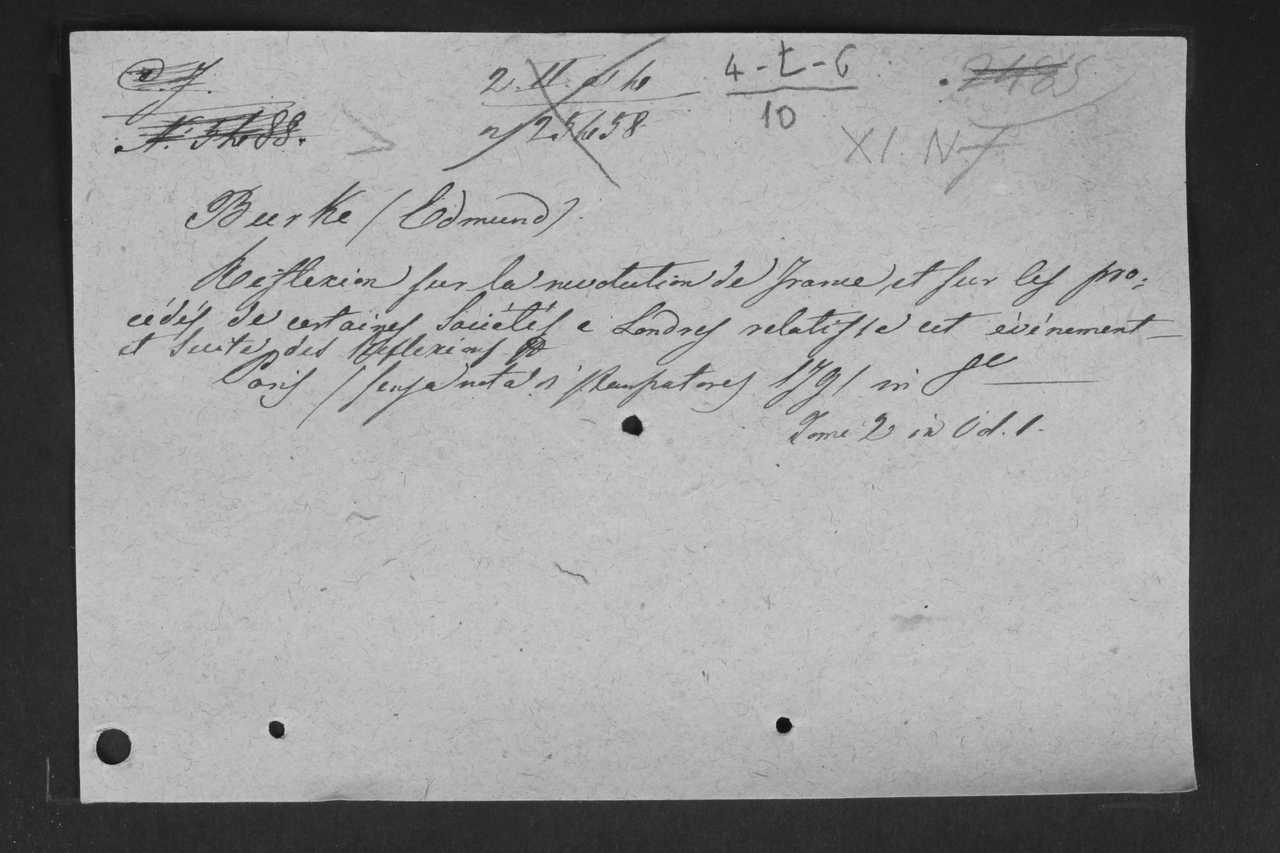 N. 5488.
n 25458
4-t-6
10
2485
XI. N.f
Burke (Edmund)
Reflexion sur la revolution de France, et sur les pro:
cédés de certaines Sociétés e Londres relatifs a cet événement
et Suite des Reflexions
Paris (senza nota di Stampatore) 1791 in 8.º
Tome 2 in Vol. 1.